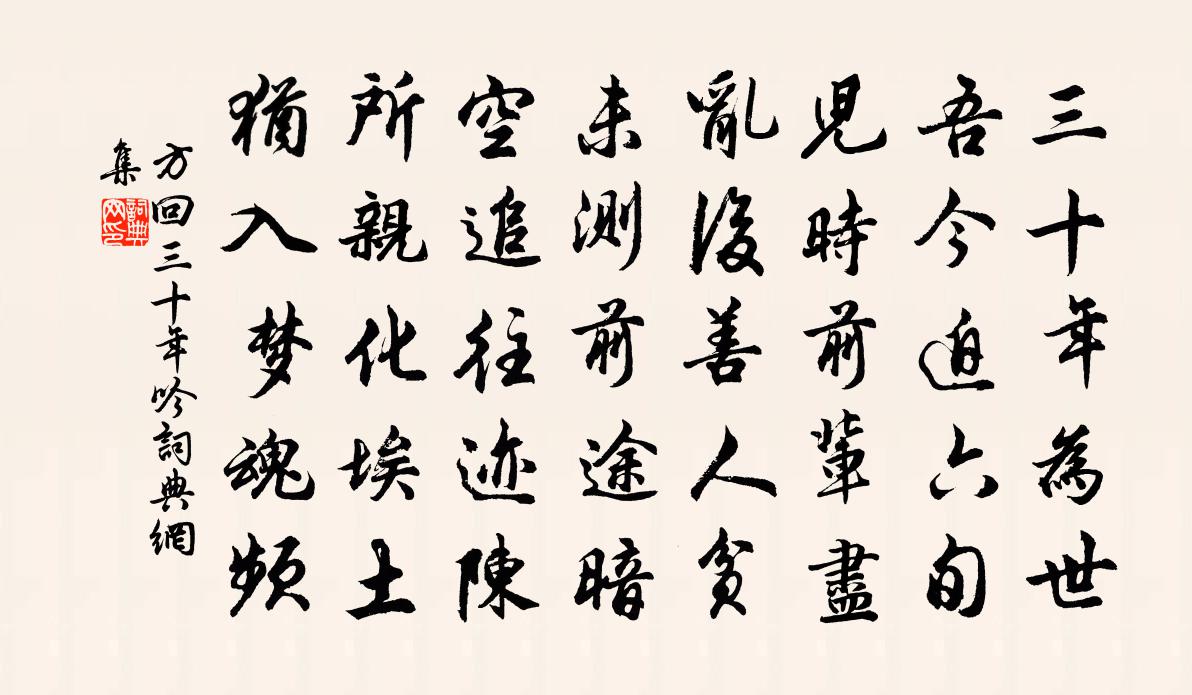 三十年為世
吾今迫六旬
兒時前輩盡
亂後善人貧
未測前途暗
空追往迹陳
所親化埃土
猶入梦魂頻
方回三十年吟詞典網
集
詞典
网印